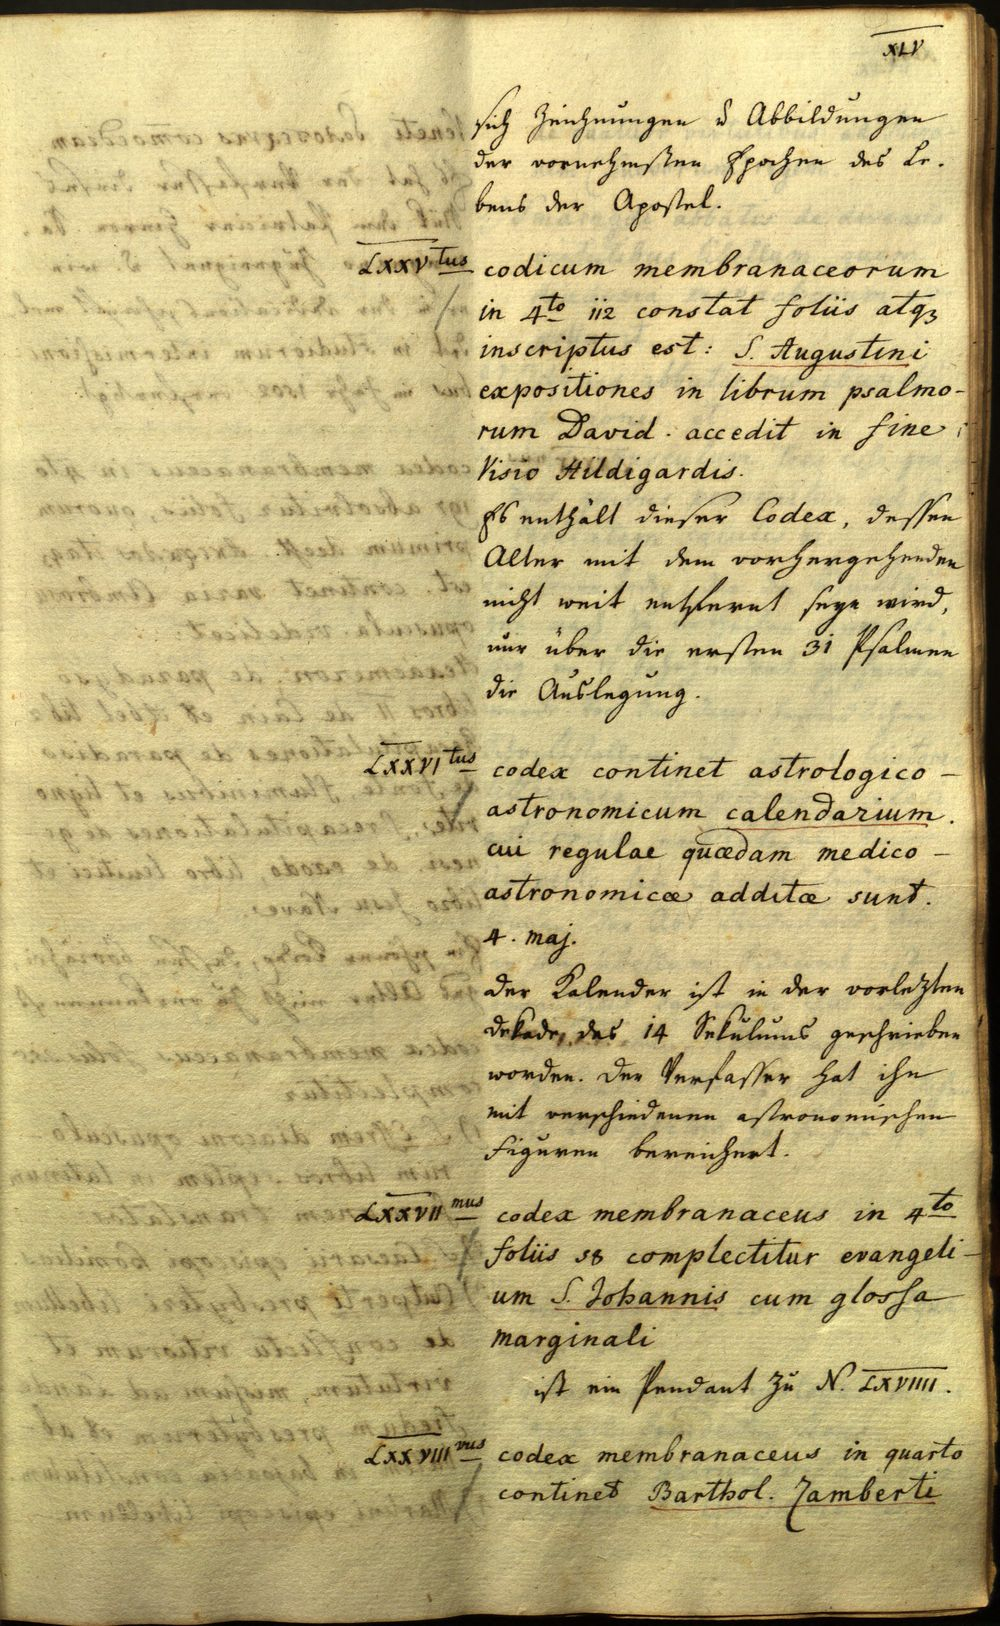 XLV
sich Zeichnungen u Abbildungen
der vornehmsten Epochen des Le-
bens der Apostel.
LXXVtus codicum membranaceorum
in 4to 112 constat foliis atq3
inscriptus est: S. Augustini
expositiones in librum psalmo-
rum David. accedit in fine
Visio Hildigardis.
Es enthält dieser Codex, dessen
Alter mit dem vorhergehenden
nicht weit entfernt seyn wird,
nur über die ersten 31 Psalmen
die Auslegung.
LXXVItus codex continet astrologico-
astronomicum calendarium.
cui regulae quædam medico-
astronomicæ additæ sunt.
4. maj.
Der Kalender ist in der vorlezten
Dekade, des 14 Sekulums geschrieben
worden. Der Verfasser hat ihn
mit verschiedenen astronomischen
Figuren bereichert.
LXXVIImus codex membranaceus in 4to
foliis 58 complectitur evangeli-
um S. Johannis cum glossa
marginali
ist ein Pendant zu N. LXVIIII.
LXXVIIIvus codex membranaceus in quarto
continet Barthol. Zamberti